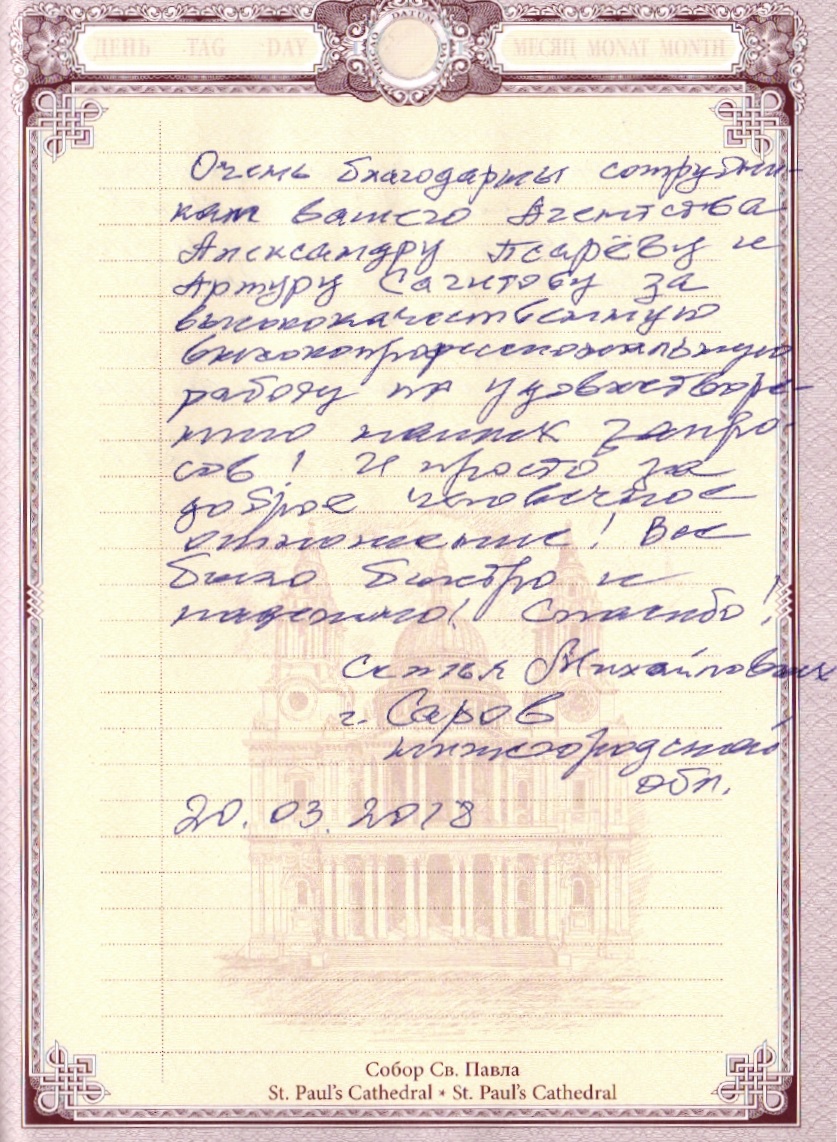 ДЕНЬ TAG DAY
DATUM
МЕСЯЦ MONAT MONTH
Очень благодарны сотрудни-
кам вашего Агентства
Александру Псарёву и
Артуру Сагитову за
высококачественную
высокопрофессиональную
работу по удовлетворе-
нию наших запро-
сов! И просто за
доброе человечное
отношение! Все
было быстро и
надежно! Спасибо!
Семья Михайловых
г. Саров
Нижегородской
обл.
20.03.2018
Собор Св. Павла
St. Paul's Cardinal * St. Paul's Cathedral